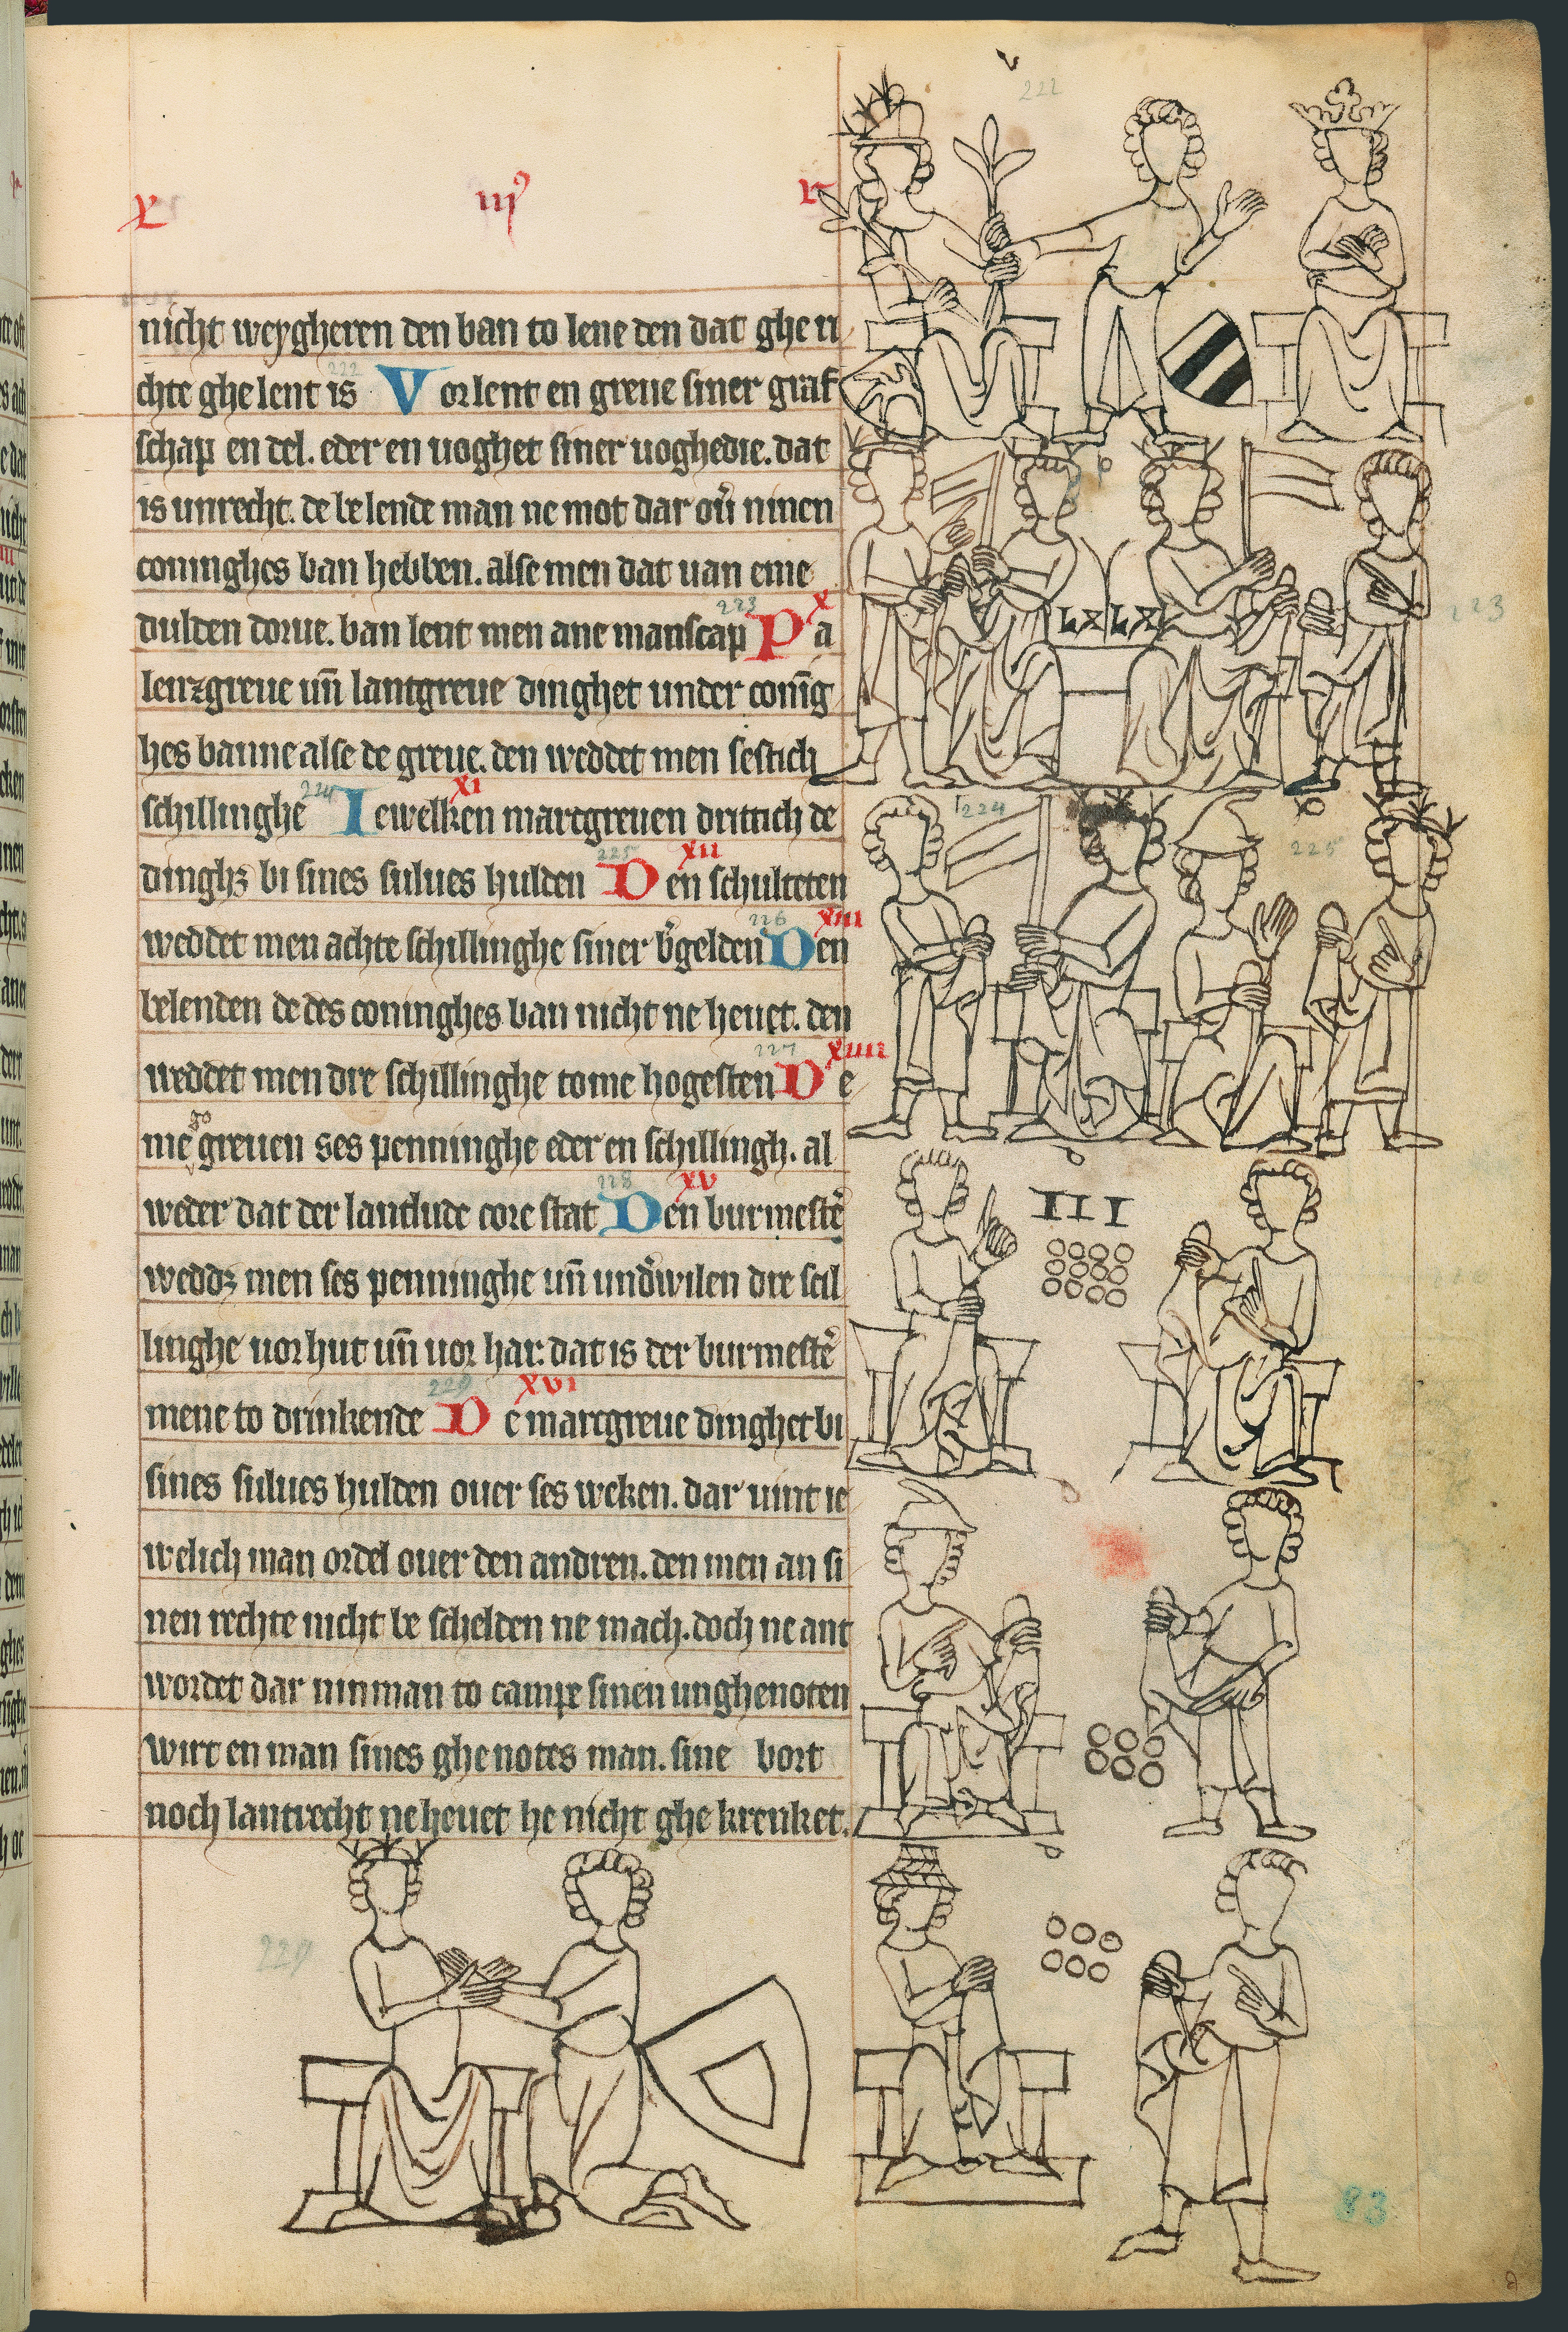 x iij⁹ r
nicht weygheren den ban to lene den dat ghe ri
chte ghe lent is Vorlent en greue siner graf
schap en del. eder en uoghet siner uoghedie. dat
is unrecht. de belende man ne mot dar ou̾ ninen
coninghes ban hebben. alse men dat uan eme
dulden dorue. ban lent men ane manscap Pa
lenzgreue un̄ lantgreue dinghet under coni̅g
hes banne alse de greue. den weddet men sestich
schillinghe Iewelken marcgreuen drittich de
dinghꝫ bi sines sulues hulden Den schulteten
weddet men achte schillinghe siner v̾gelden Den
belenden de des coninghes ban nicht ne heuet. den
weddet men dre schillinghe tome hogesten De
me go greuen ses penninghe eder en schillingh. al
weder dat der lantlude core stat Den burmeste̾
weddꝫ men ses penninghe un̄ und̾wilen dre scil
linghe uor hut un̄ uor har. dat is der burmeste̾
mene to drinkende De marcgreue dinghet bi
sines sulues hulden ouer ses weken. dar uint ie
welich man ordel ouer den andren. den men an si
nen rechte nicht be schelden ne mach. doch ne ant
wordet dar nin man to campe sinen unghenoten
wirt en man sines ghe notes man. sine bort
noch lantrecht ne heuet he nicht ghe krenket.
x
xi
xii
xiii
xiiii
xv
xvi
222
223
224
225
226
227
228
229
222
LX LX
223
224
225
III
229
83